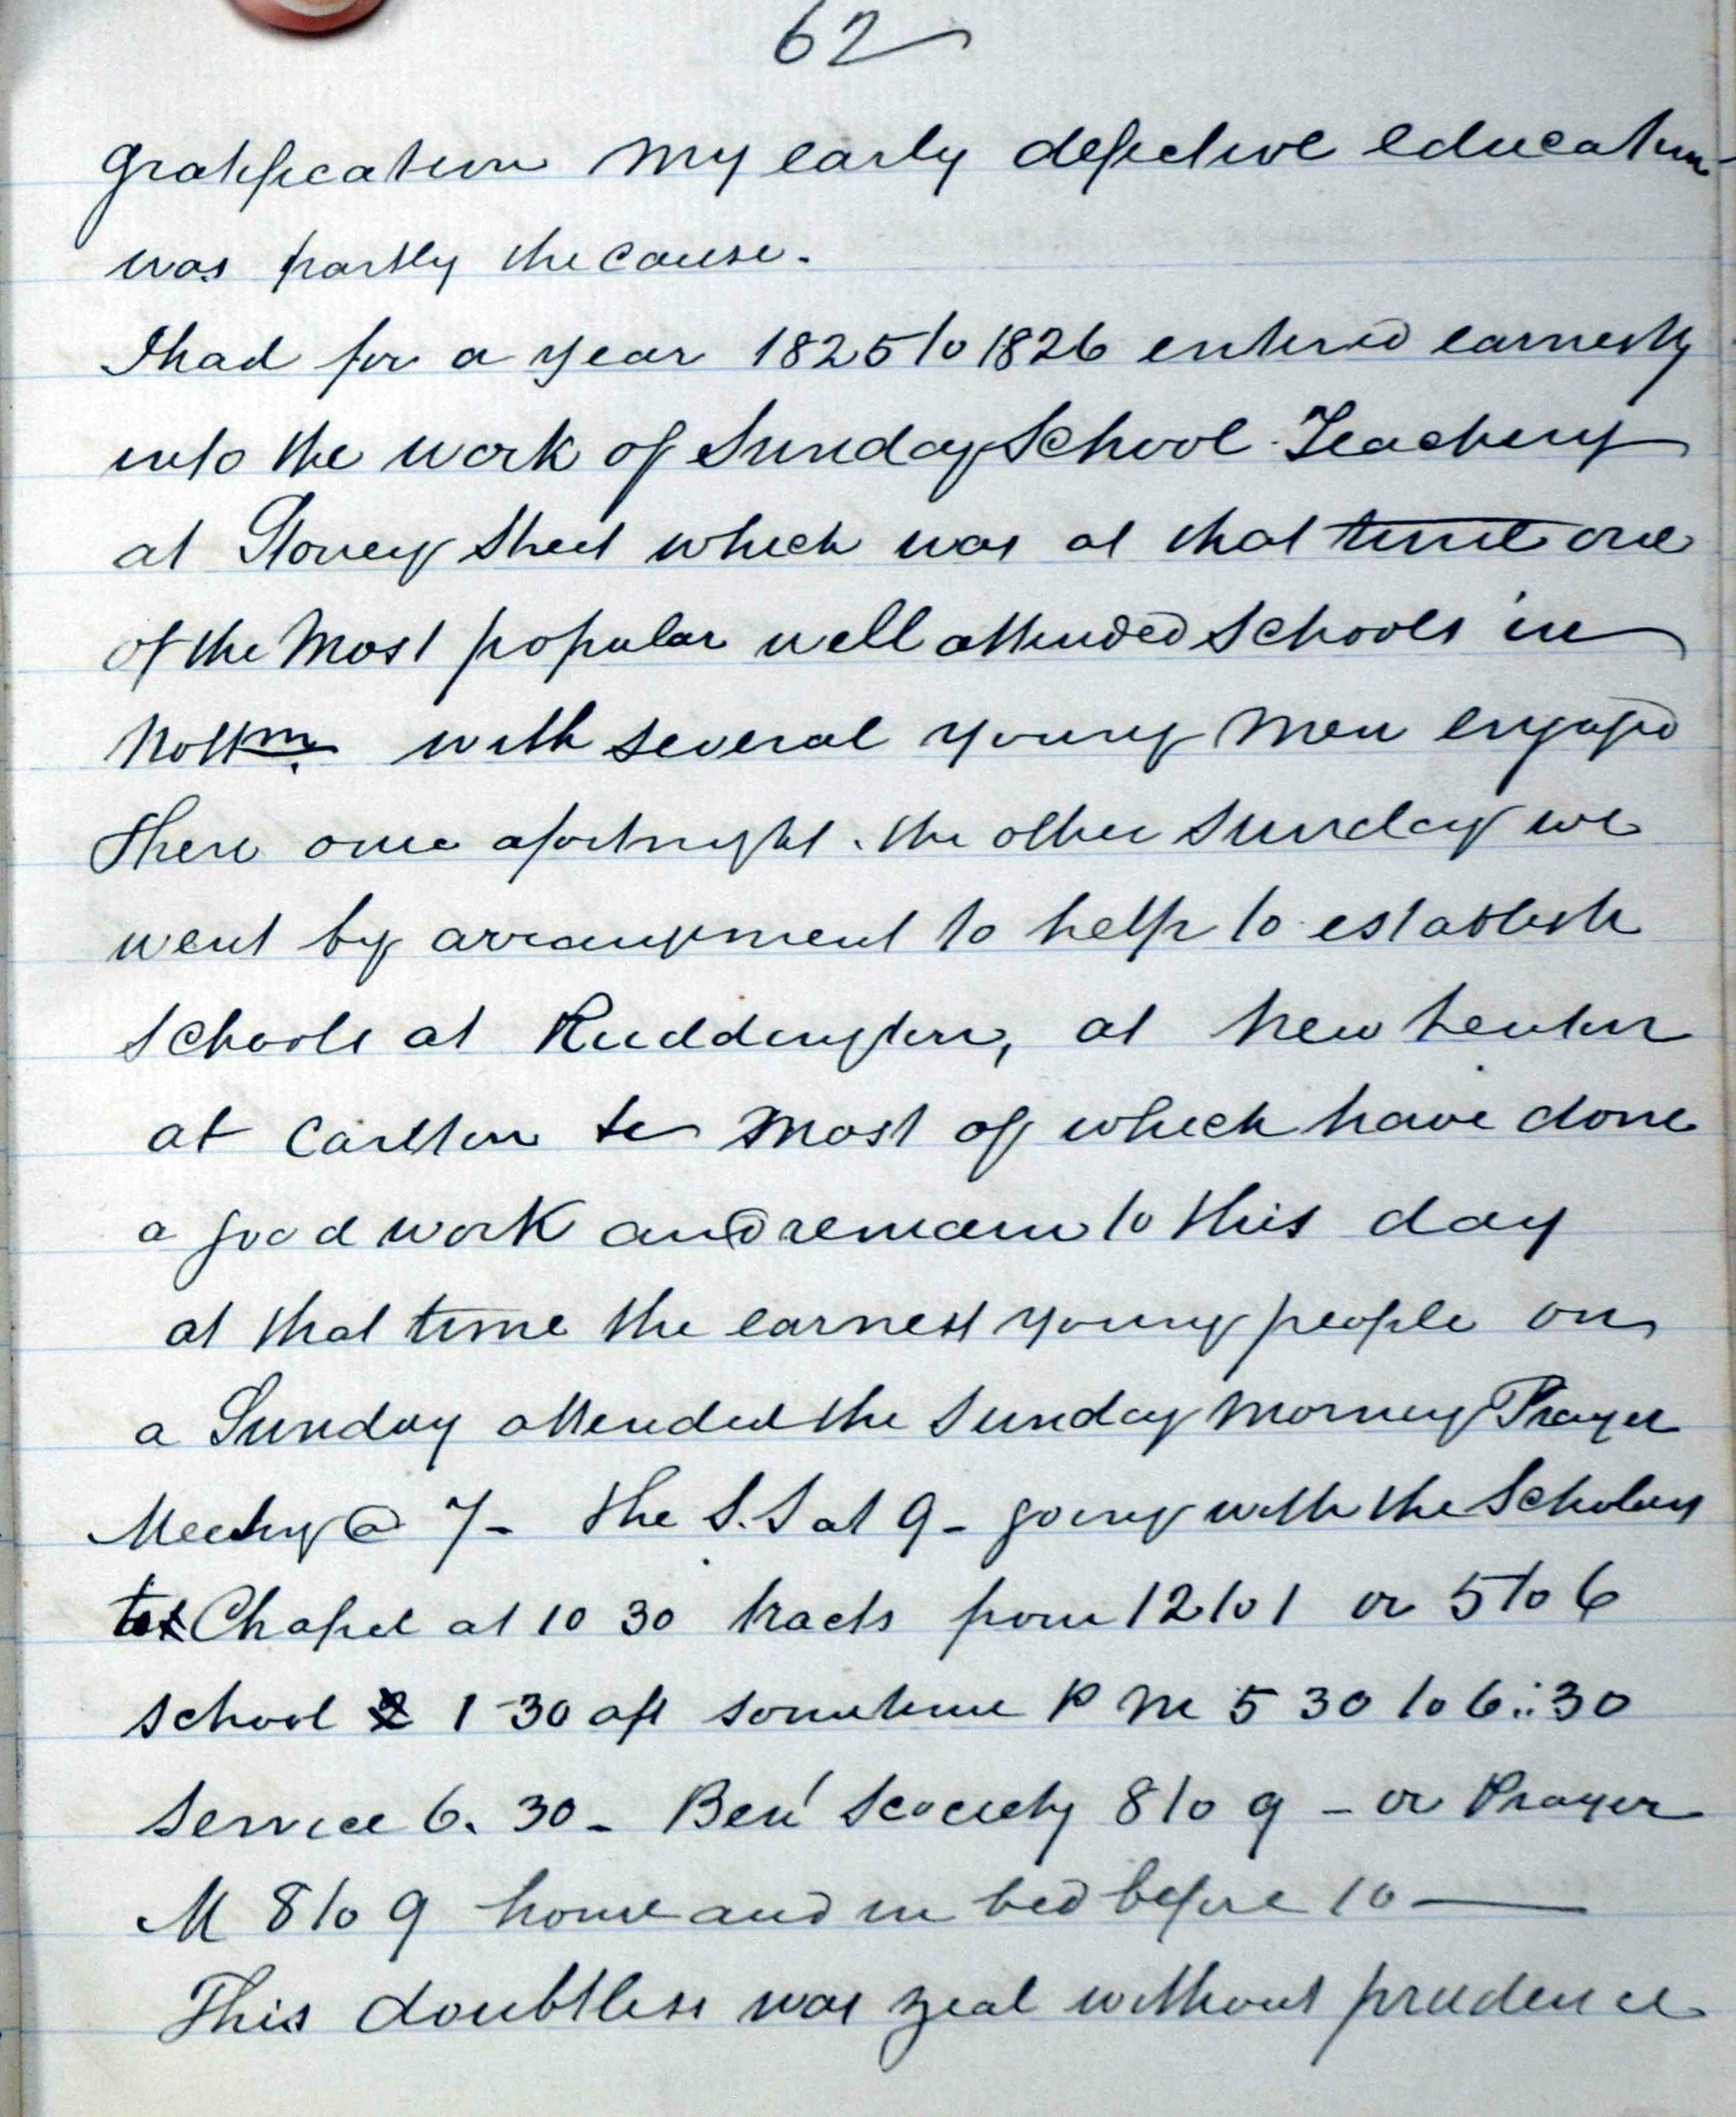 62
gratification my early defective education
was partly the cause.
I had for a year 1825 to 1826 entered earnestly
into the work of Sunday School Teaching
at Stoney Street which was at that time one
of the Most popular well attended schools in
Nottm. with several young Men engaged
there once a fortnight. the other Sunday we
went by arrangement to help to establish
schools at Ruddington, at New Lenton
at Carlton &c Most of which have done
a good work and remain to this day
at that time the earnest young people on
a Sunday attended the Sunday Morning Prayer
Meeting @ 7 - the S.S at 9 - going with the Scholars
to Chapel at 10 30 tracts from 12 to 1 or 5 to 6
school 1-30 aft sometime P M 5 30 to 6:30
Service 6. 30 - Ben' Scociety 8 to 9 - or Prayer
M 8 to 9 home and in bed before 10 —
This doubtless was zeal without prudence